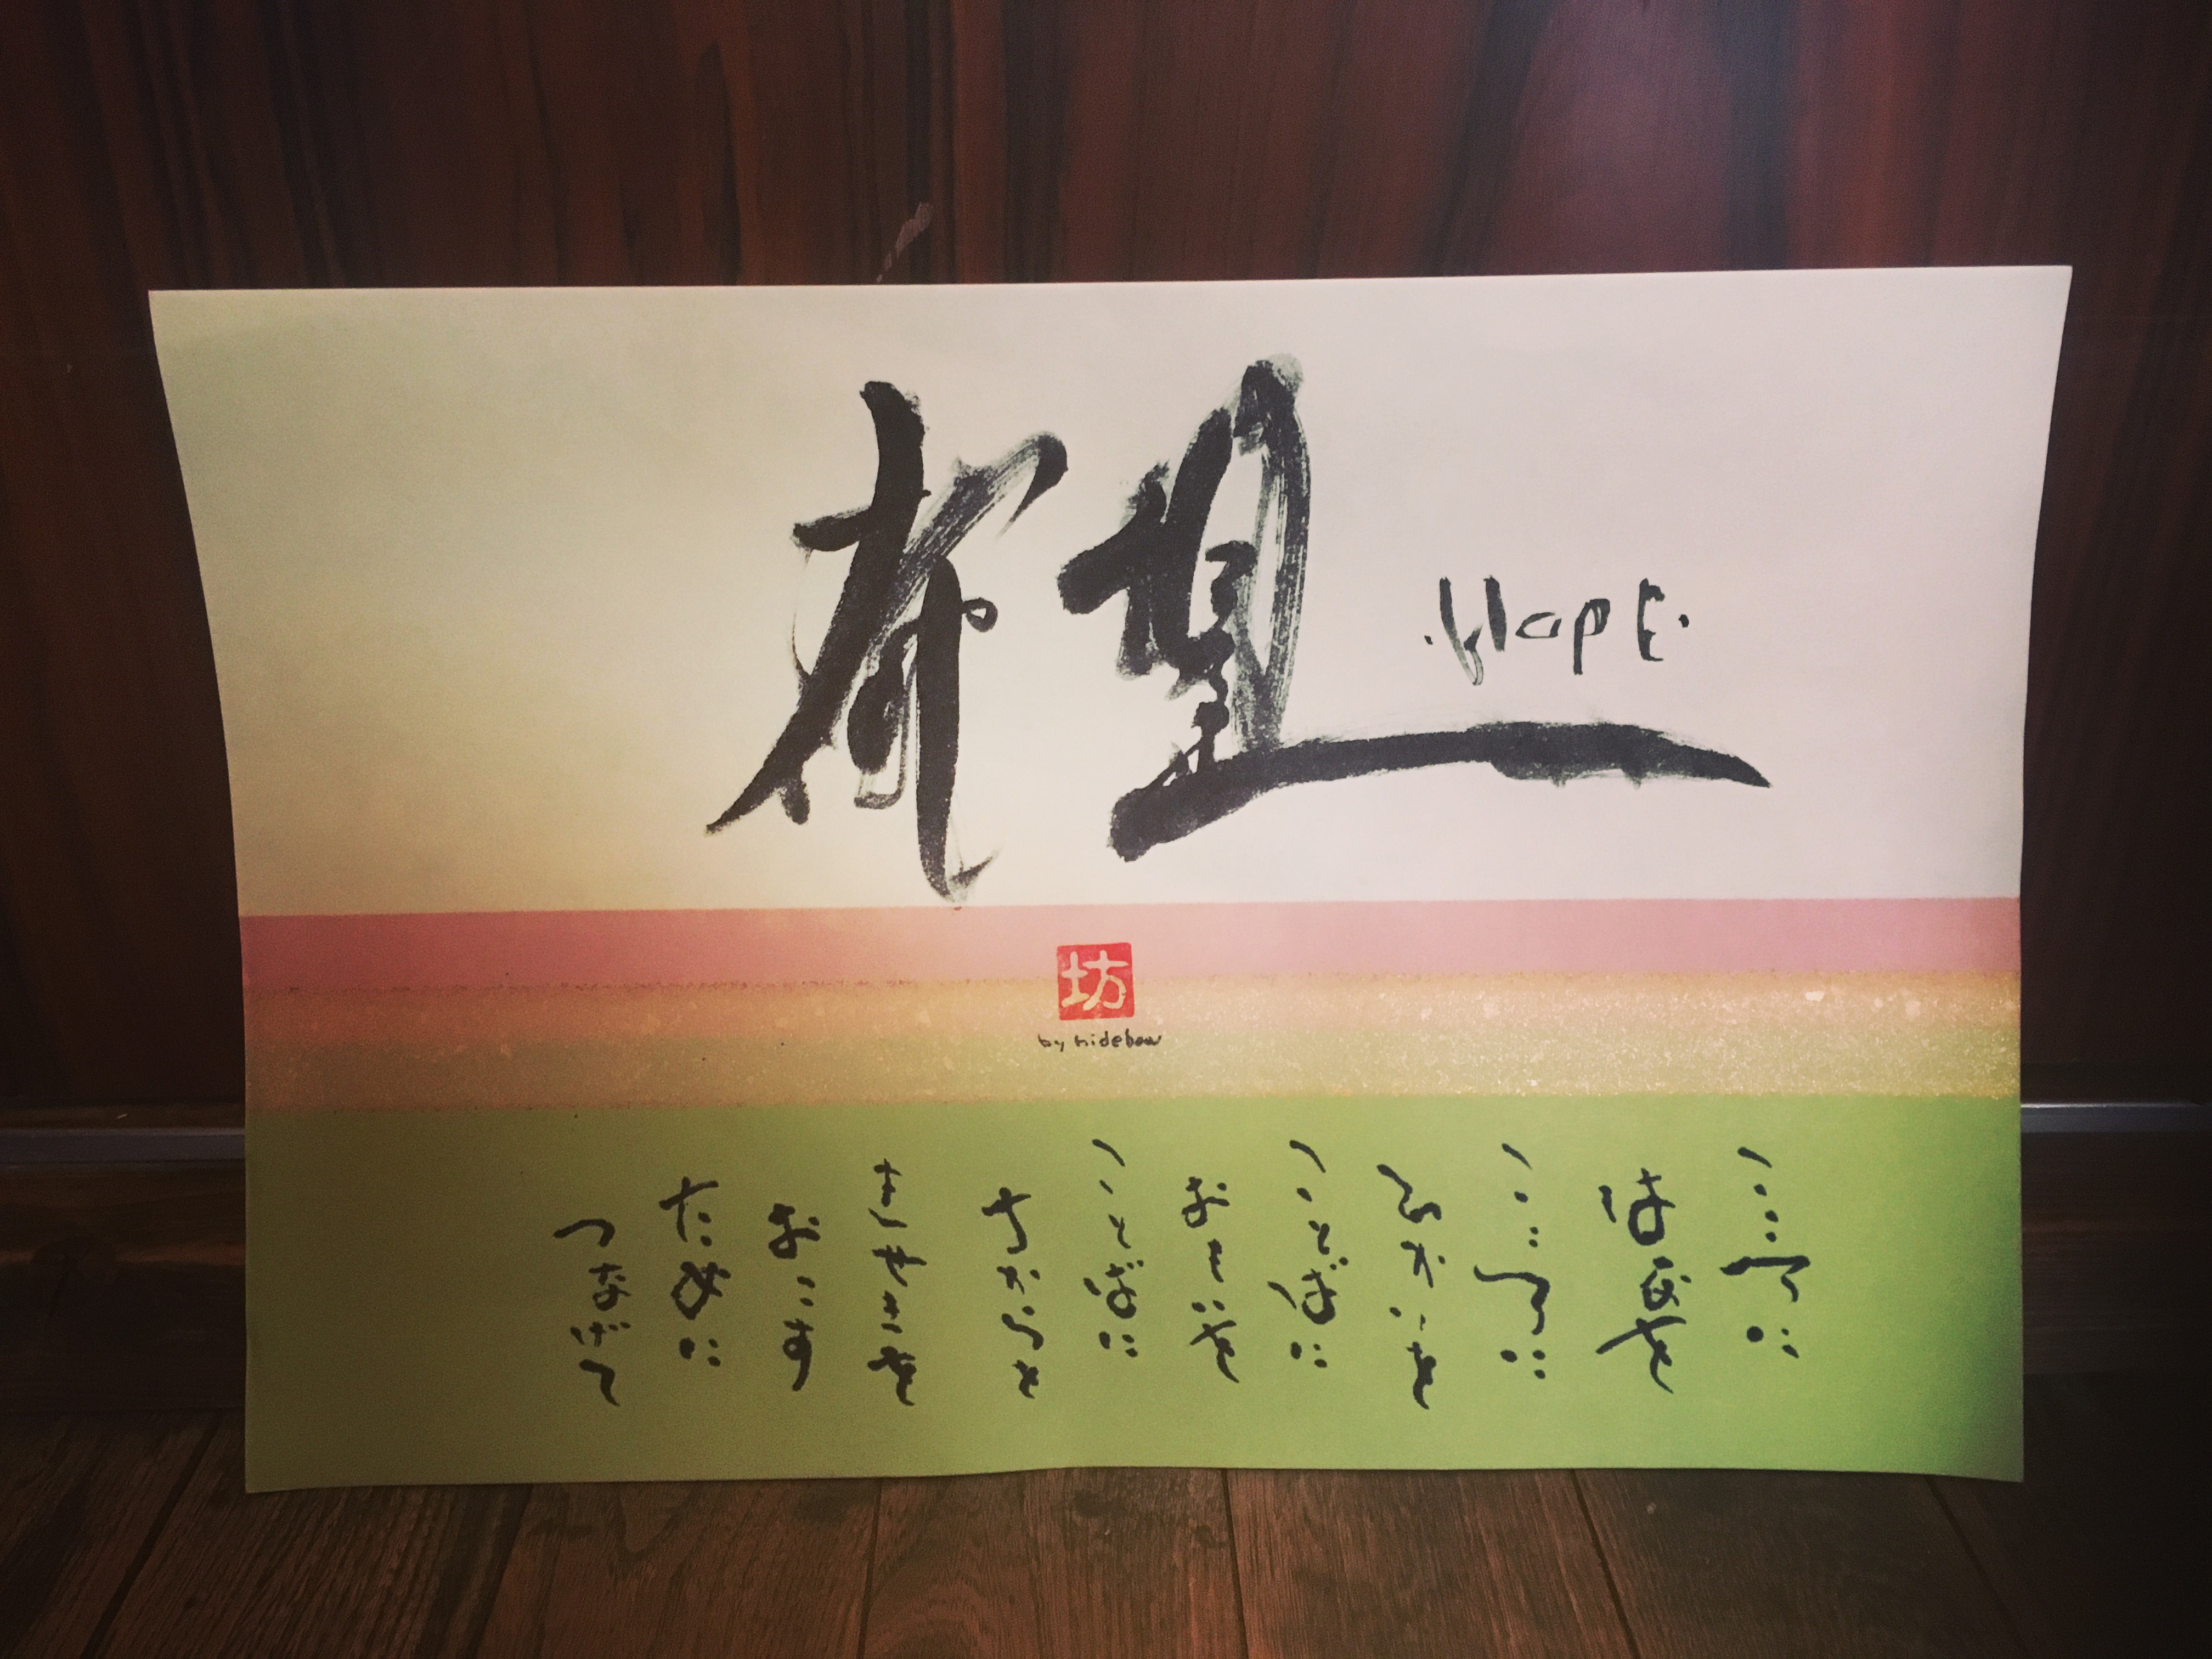 希望
HOPE
坊
by hidebow
こころに
はなを
こころに
ことばに
おもいを
ことばに
ちからを
きせきを
おこす
ために
つなげて